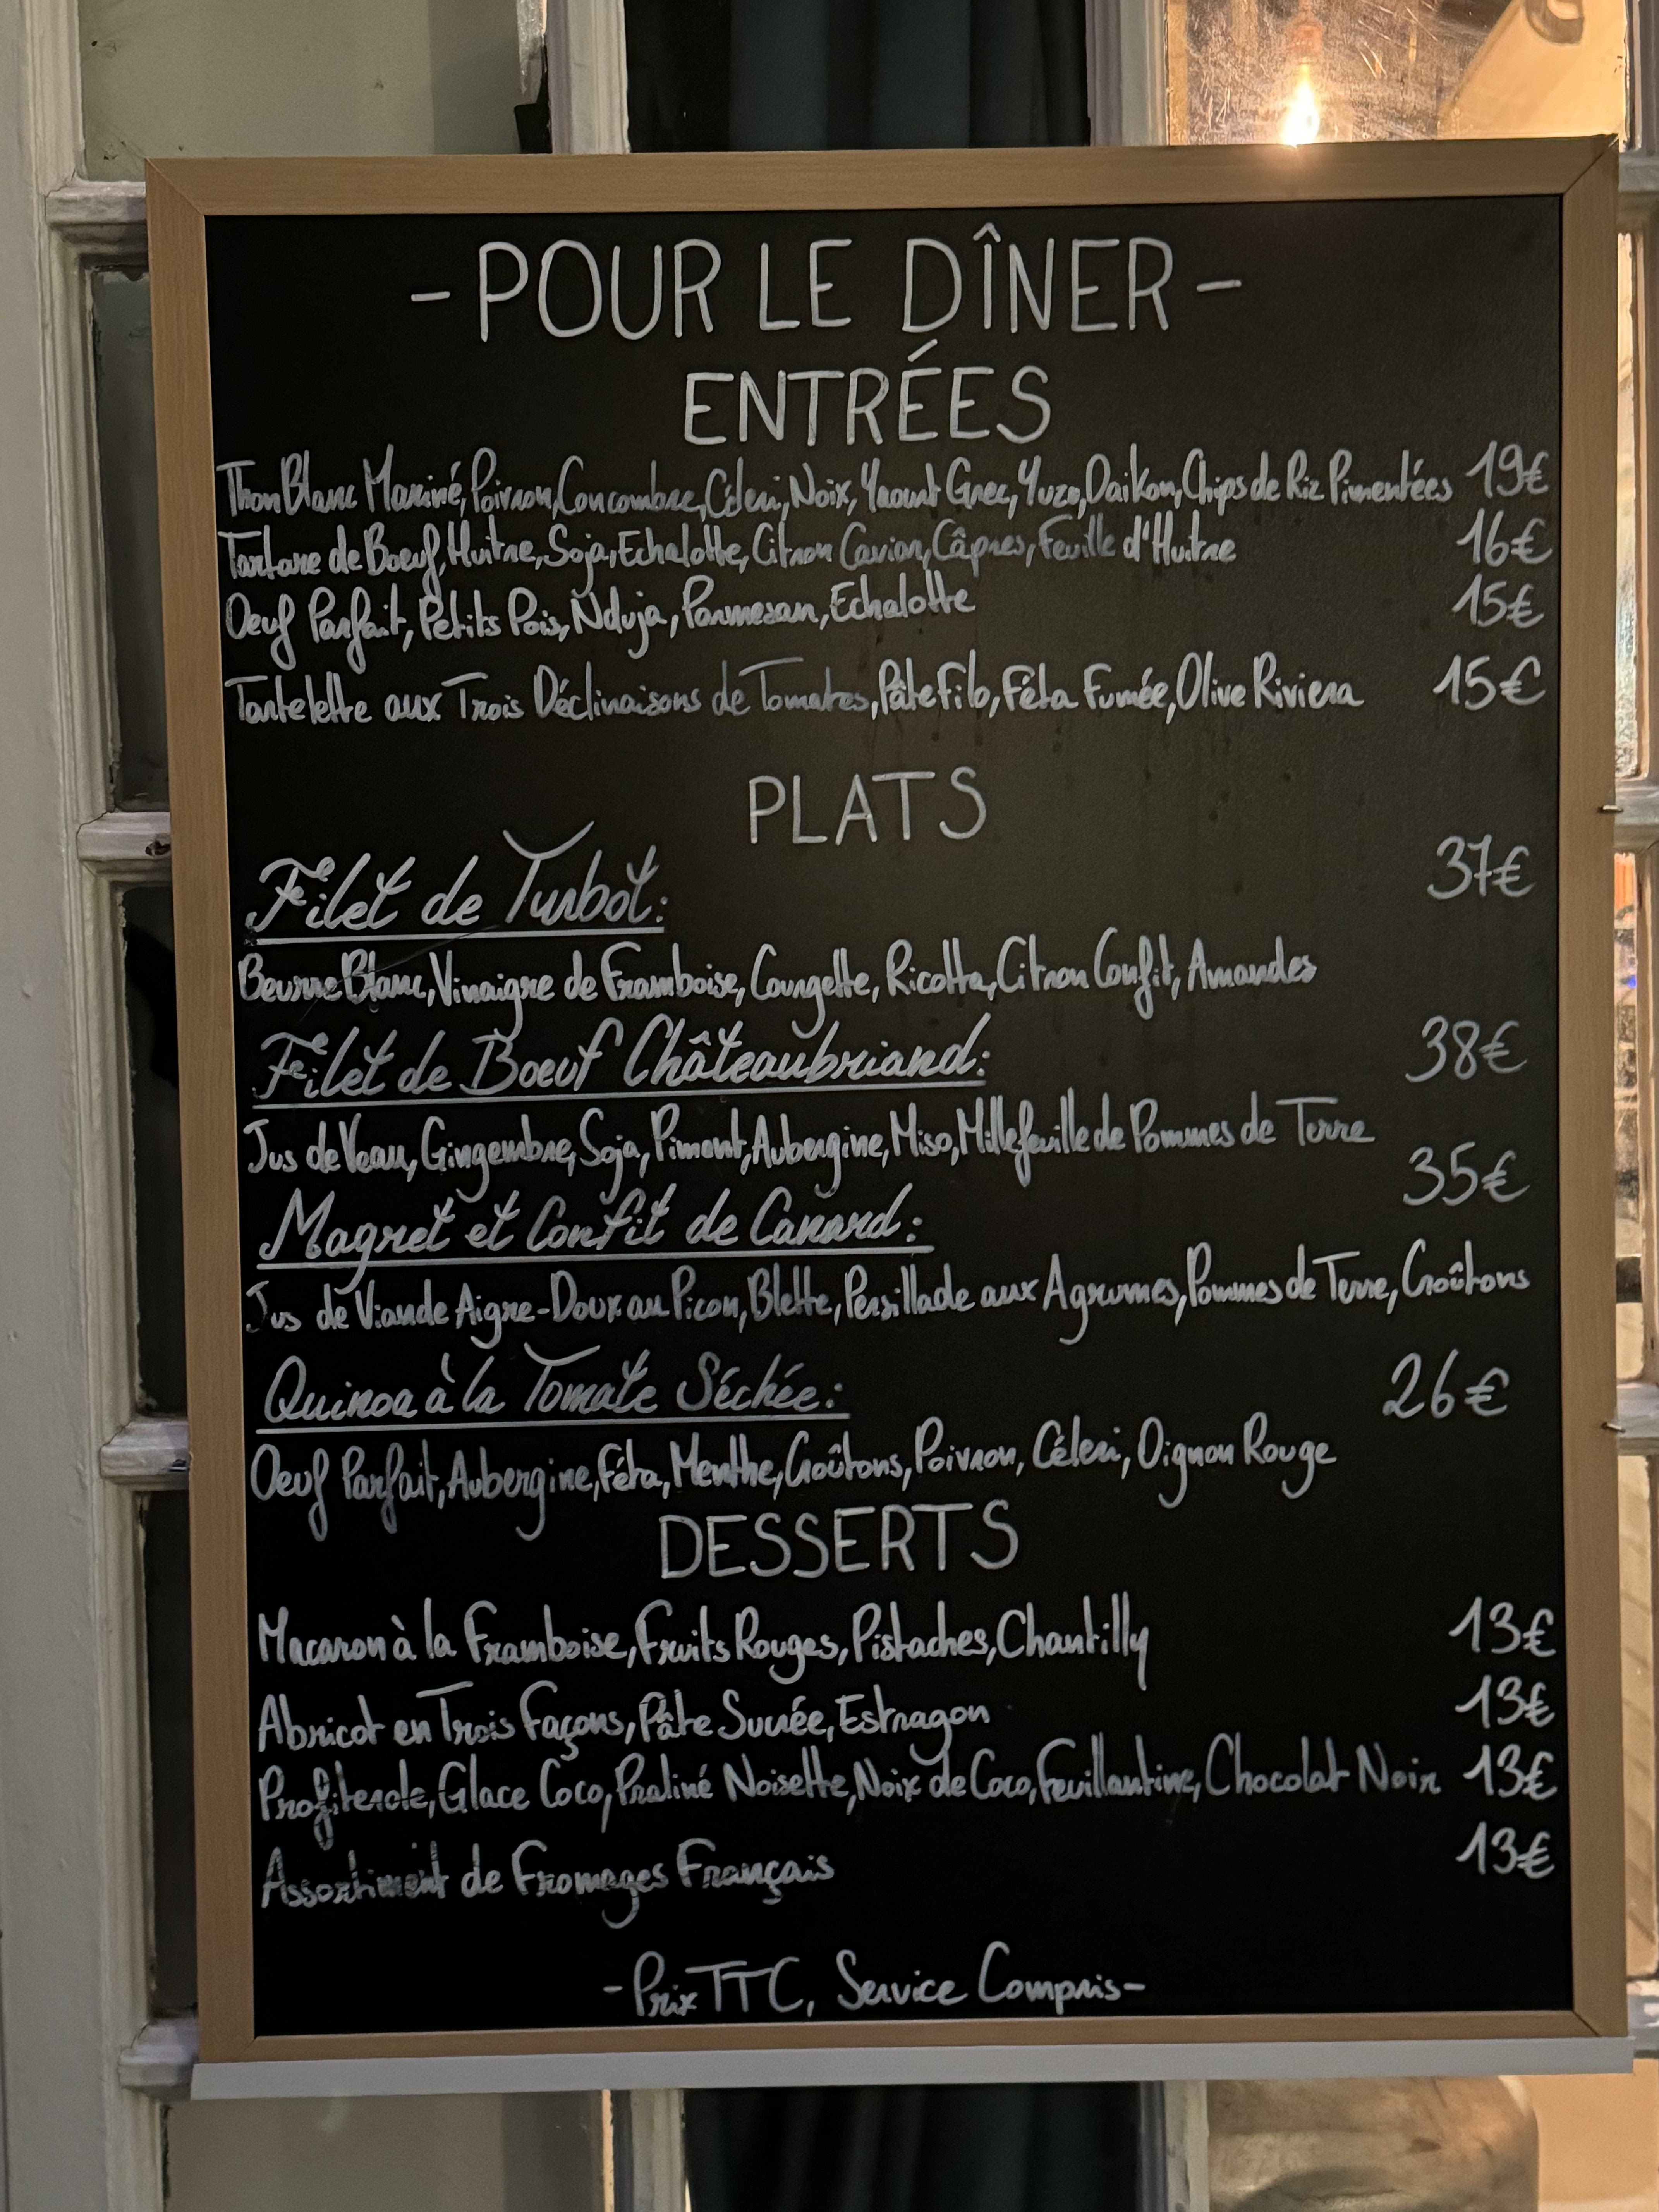 - POUR LE DÎNER -
ENTRÉES
Thon Blanc Mariné, Poivron, Concombre, Céleri, Noix, Yaourt Grec, Yuzu, Daikon, Chips de Riz Pimentées 19€
Tartare de Boeuf, Huitre, Soja, Echalotte, Citron Caviar, Câpres, Feuille d'Huitre 16€
Oeuf Parfait, Petits Pois, Nduja, Parmesan, Echalotte 15€
Tartelette aux Trois Déclinaisons de Tomates, Pâte Filo, Féta Fumée, Olive Riviera 15€
PLATS
Filet de Turbot: 37€
Beurre Blanc, Vinaigre de Framboise, Courgette, Ricotta, Citron Confit, Amandes
Filet de Boeuf Châteaubriand: 38€
Jus de Veau, Gingembre, Soja, Piment, Aubergine, Miso, Millefeuille de Pommes de Terre
Magret et Confit de Canard: 35€
Jus de Viande Aigre-Doux au Picon, Blette, Persillade aux Agrumes, Pommes de Terre, Croûtons
Quinoa à la Tomate Séchée: 26€
Oeuf Parfait, Aubergine, Féta, Menthe, Croûtons, Poivron, Céleri, Oignon Rouge
DESSERTS
Macaron à la Framboise, Fruits Rouges, Pistaches, Chantilly 13€
Abricot en Trois Façons, Pâte Sucrée, Estragon 13€
Profiterole, Glace Coco, Praliné Noisette, Noix de Coco, Feuillantine, Chocolat Noir 13€
Assortiment de Fromages Français 13€
- Prix TTC, Service Compris -